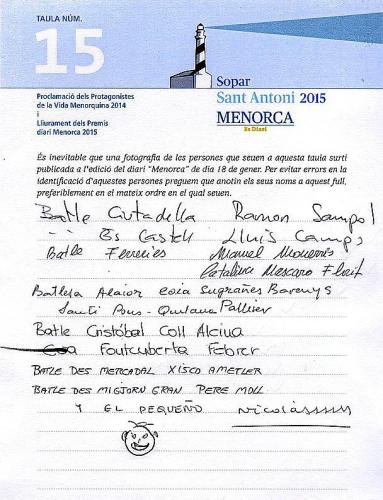 TAULA NÚM.
15
Proclamació dels Protagonistes
de la Vida Menorquina 2014
i
Lliurament dels Premis
diari Menorca 2015
Sopar
Sant Antoni 2015
MENORCA
Es Diari
És inevitable que una fotografia de les persones que seuen a aquesta taula surti
publicada a l'edició del diari "Menorca" de dia 18 de gener. Per evitar errors en la
identificació d'aquestes persones preguem que anotin els seus noms a aquest full,
preferiblement en el mateix ordre en el qual seuen.
Batle Ciutadella Ramon Sampol
-- Es Castell Lluís Camps
Batle Ferreries Manuel Monerris
Catalina Mascaro Florit
Batlesa Alaior Coia Sugrañes Barenys
Santi Pons-Quintana Palliser
Batle Cristóbal Coll Alcina
Fontcuberta Febrer
BATLE DES MERCADAL XISCO AMETLER
BATLE DES MIGJORN GRAN PERE MOLL
Y EL PEQUEÑO Nicolásssss